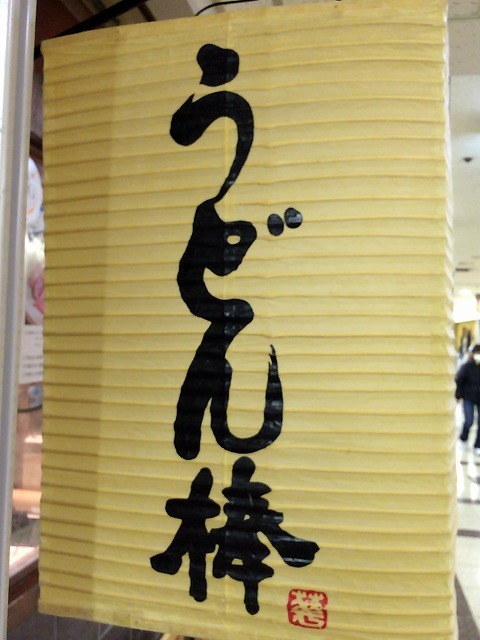 うどん棒